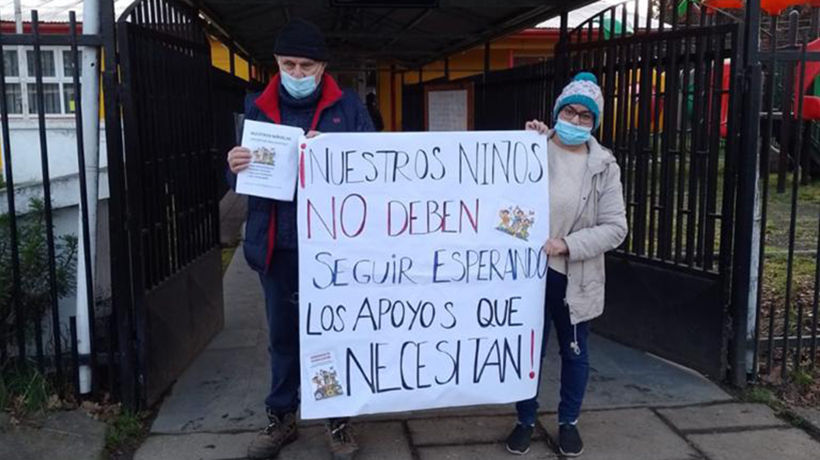 ¡NUESTROS NIÑOS
NO DEBEN
SEGUIR ESPERANDO
LOS APOYOS QUE
NECESITAN!